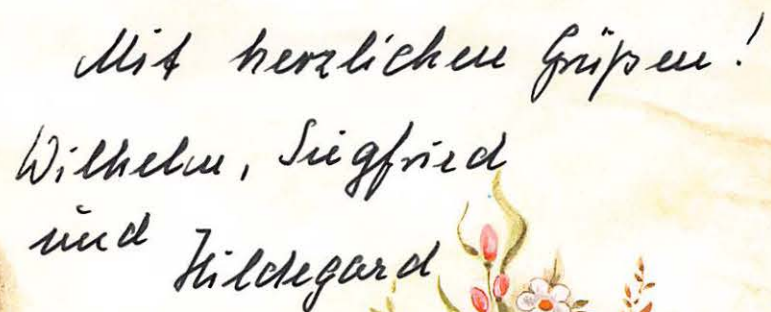 Mit herzlichen Grüßen!
Wilhelm, Siegfried
und Hildegard